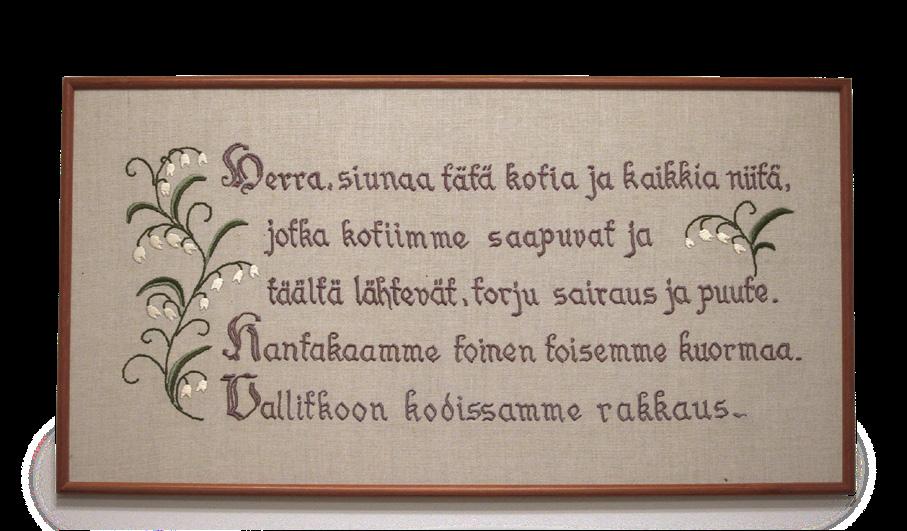 Herra, siunaa tätä kotia ja kaikkia niitä,
jotka kotiimme saapuvat ja
täältä lähtevät, torju sairaus ja puute.
Kantakaamme toinen toisemme kuormaa.
Vallitkoon kodissamme rakkaus.